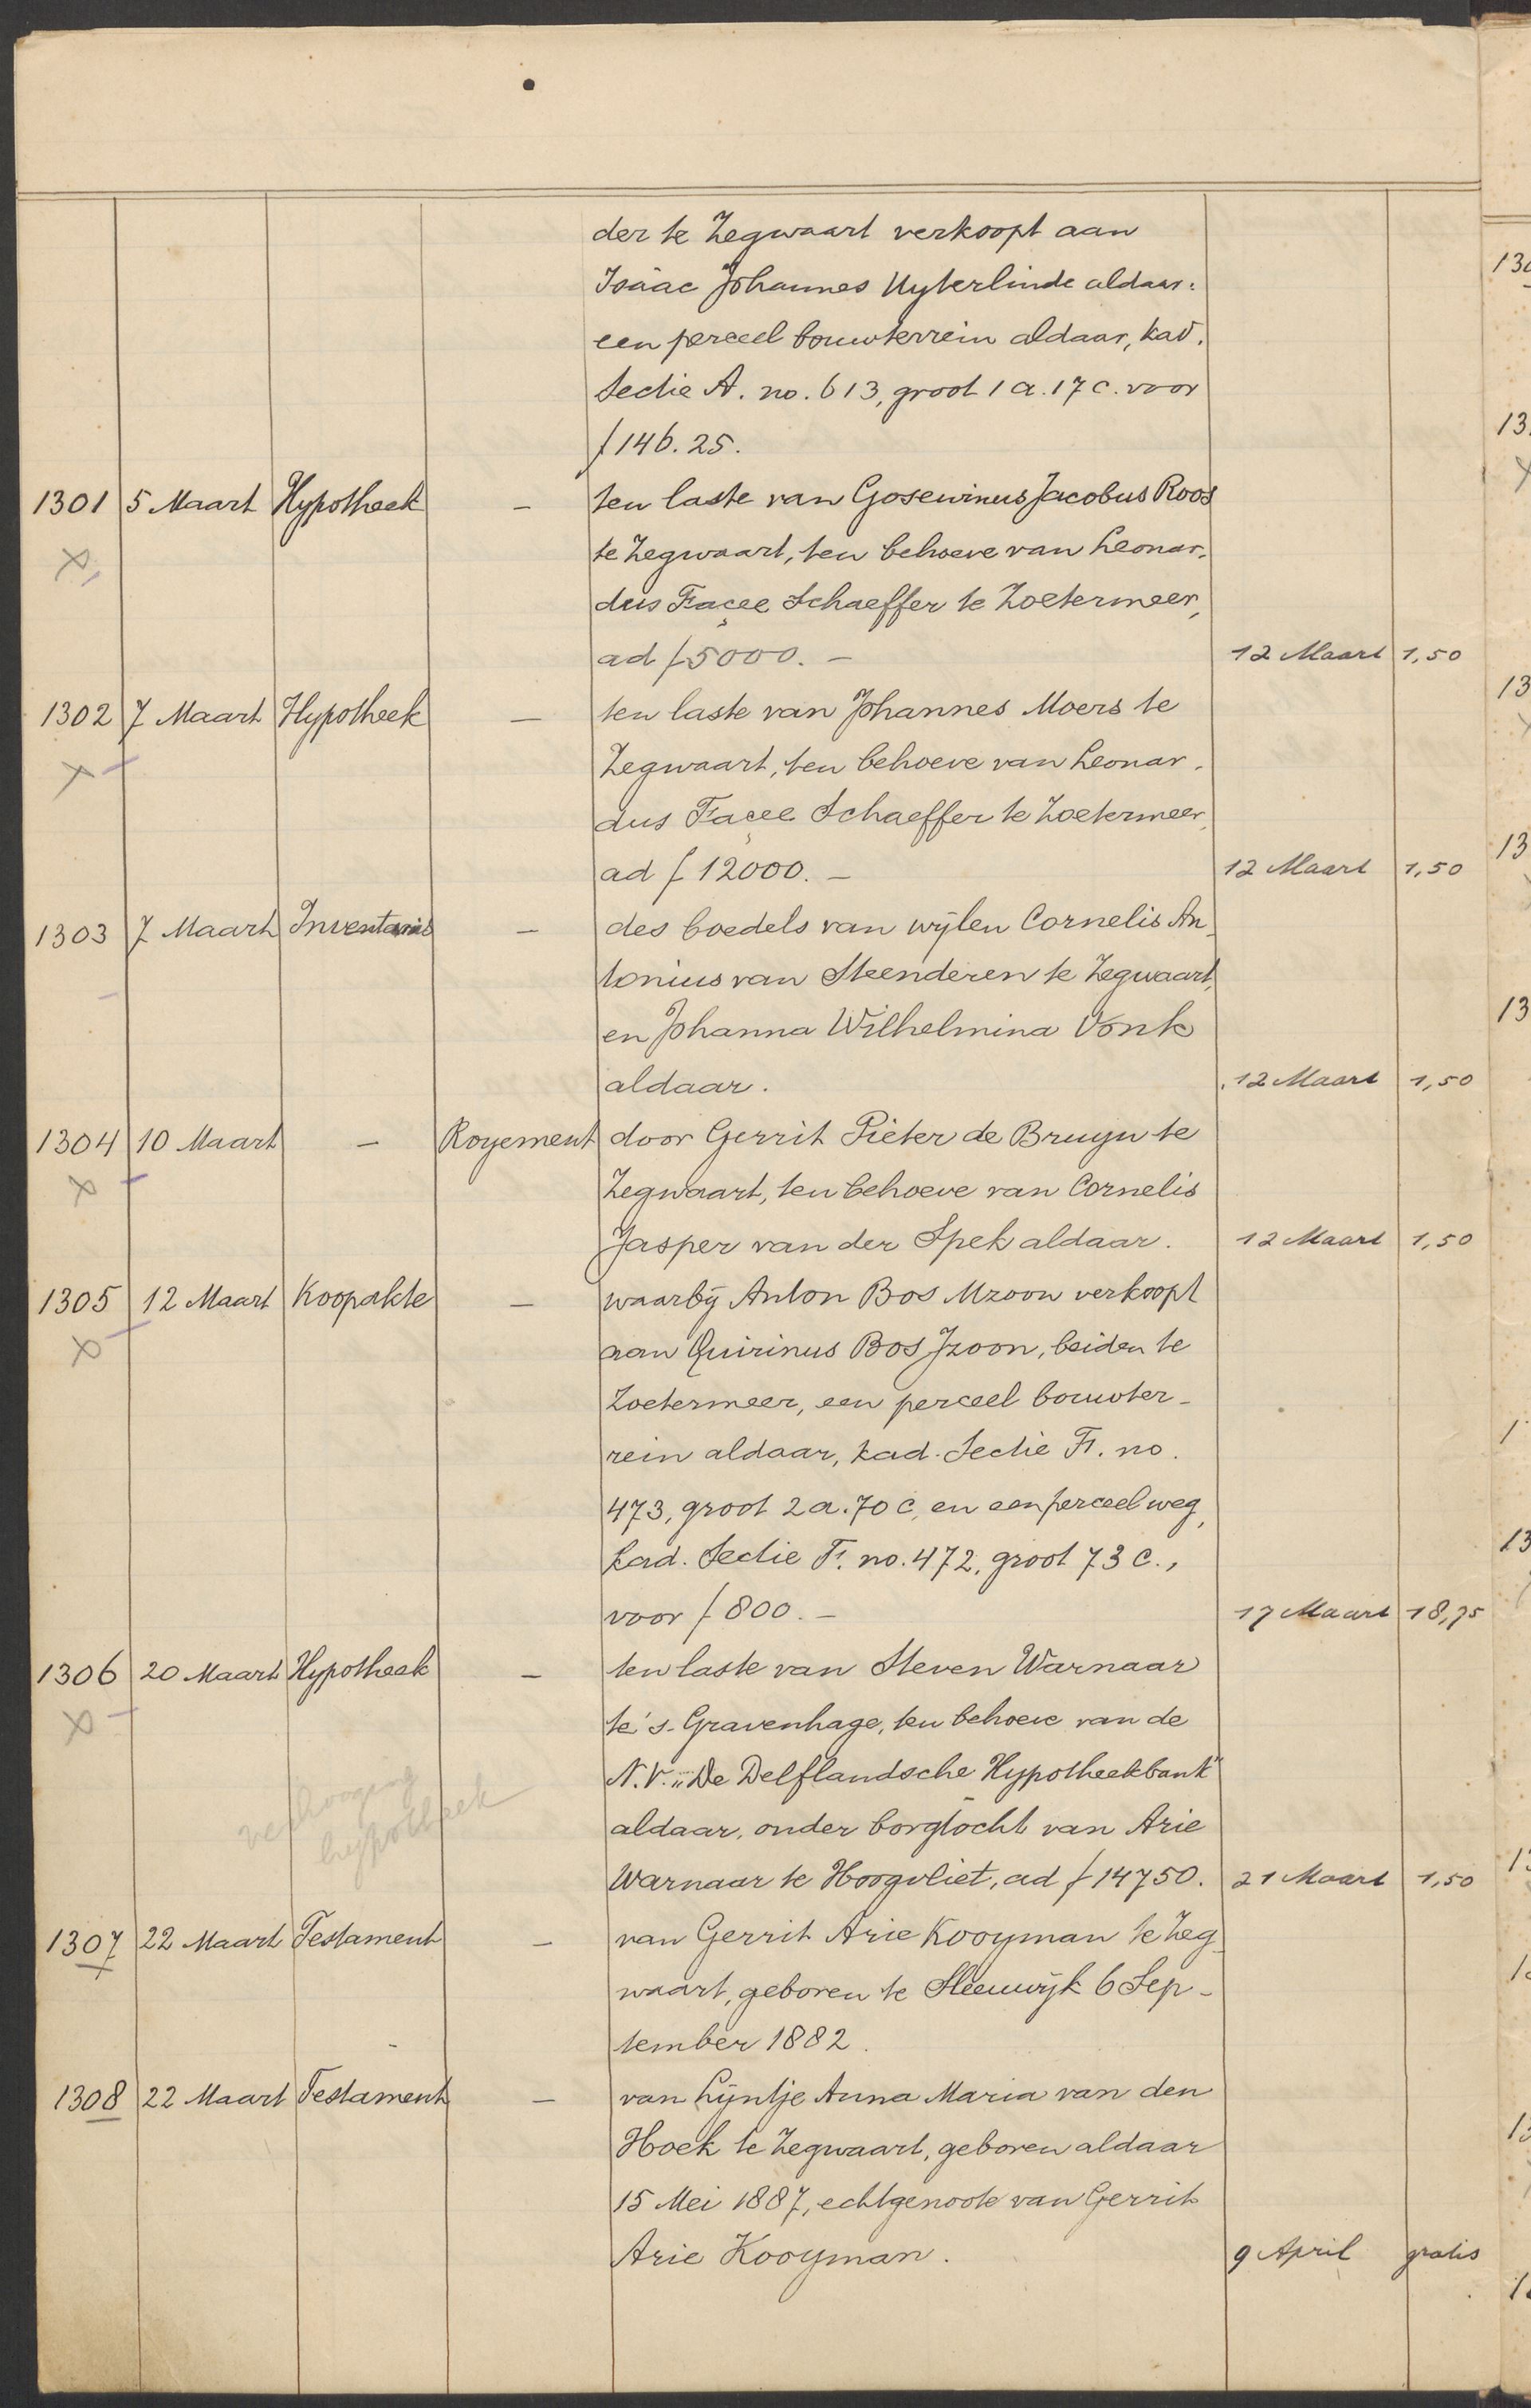 der te Zegwaart verkoopt aan
Isäac Johannes Uyterlinde aldaar:
een perceel bouwterrein aldaar, kad.
Sectie A. no. 613, groot 1 a. 17 c. voor
ƒ 146.25.
1301 5 Maart Hypotheek — ten laste van Gosewinus Jacobus Roos
te Zegwaart, ten behoeve van Leonar-
dus Façee Schaeffer te Zoetermeer,
ad ƒ 5000.— 12 Maart 1,50
1302 7 Maart Hypotheek — ten laste van Johannes Moers te
Zegwaart, ten behoeve van Leonar-
dus Façee Schaeffer te Zoetermeer,
ad ƒ 12000.— 12 Maart 1,50
1303 7 Maart Inventaris — des boedels van wijlen Cornelis An-
tonius van Steenderen te Zegwaart,
en Johanna Wilhelmina Vonk
aldaar. 12 Maart 1,50
1304 10 Maart — Royement door Gerrit Pieter de Bruyn te
Zegwaart, ten behoeve van Cornelis
Jasper van der Spek aldaar. 12 Maart 1,50
1305 12 Maart Koopakte — waarbij Anton Bos Mzoon verkoopt
aan Quirinus Bos Jzoon, beiden te
Zoetermeer, een perceel bouwter-
rein aldaar, kad. Sectie F. no.
473, groot 2 a. 70 c, en een perceel weg,
kad. Sectie F. no. 472, groot 73 c.,
voor ƒ 800.— 17 Maart 18,75
1306 20 Maart Hypotheek — ten laste van Steven Warnaar
te 's-Gravenhage, ten behoeve van de
N.V. „De Delflandsche Hypotheekbank"
verhooging
hypotheek
aldaar, onder borgtocht van Arie
Warnaar te Hoogvliet, ad ƒ 14750. 21 Maart 1,50
1307 22 Maart Testament — van Gerrit Arie Kooyman te Zeg-
waart, geboren te Sleeuwijk 6 Sep-
tember 1882.
1308 22 Maart Testament — van Lijntje Anna Maria van den
Hoek te Zegwaart, geboren aldaar
15 Mei 1887, echtgenoote van Gerrit
Arie Kooyman. 9 April gratis